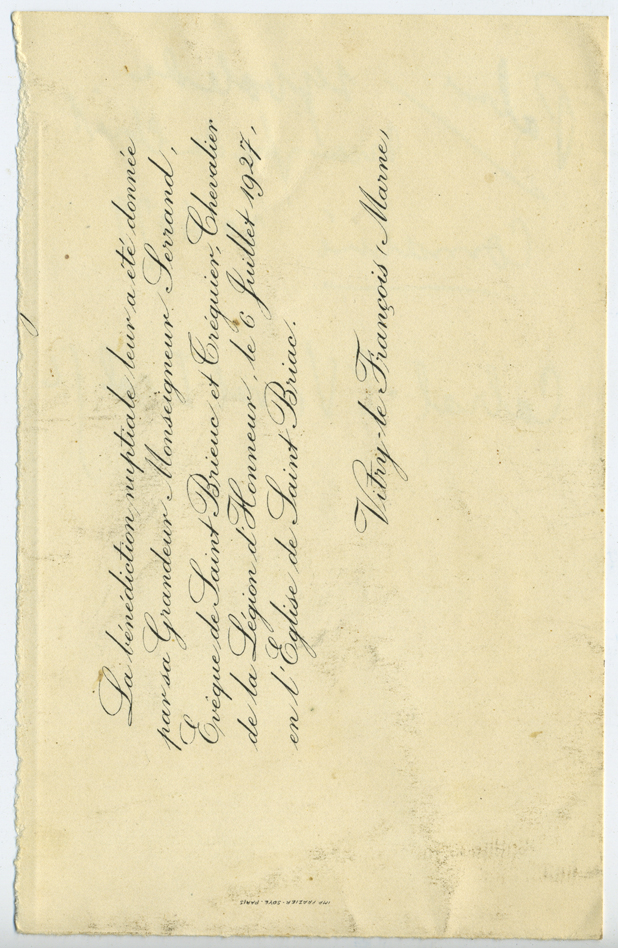 La bénédiction nuptiale leur a été donnée
par sa Grandeur Monseigneur Serrand,
Evêque de Saint Brieuc et Tréguier, Chevalier
de la Légion d'Honneur, le 6 Juillet 1927,
en l'Eglise de Saint Briac.
Vitry-le François (Marne)
IMP. FRAZIER-SOYE. PARIS